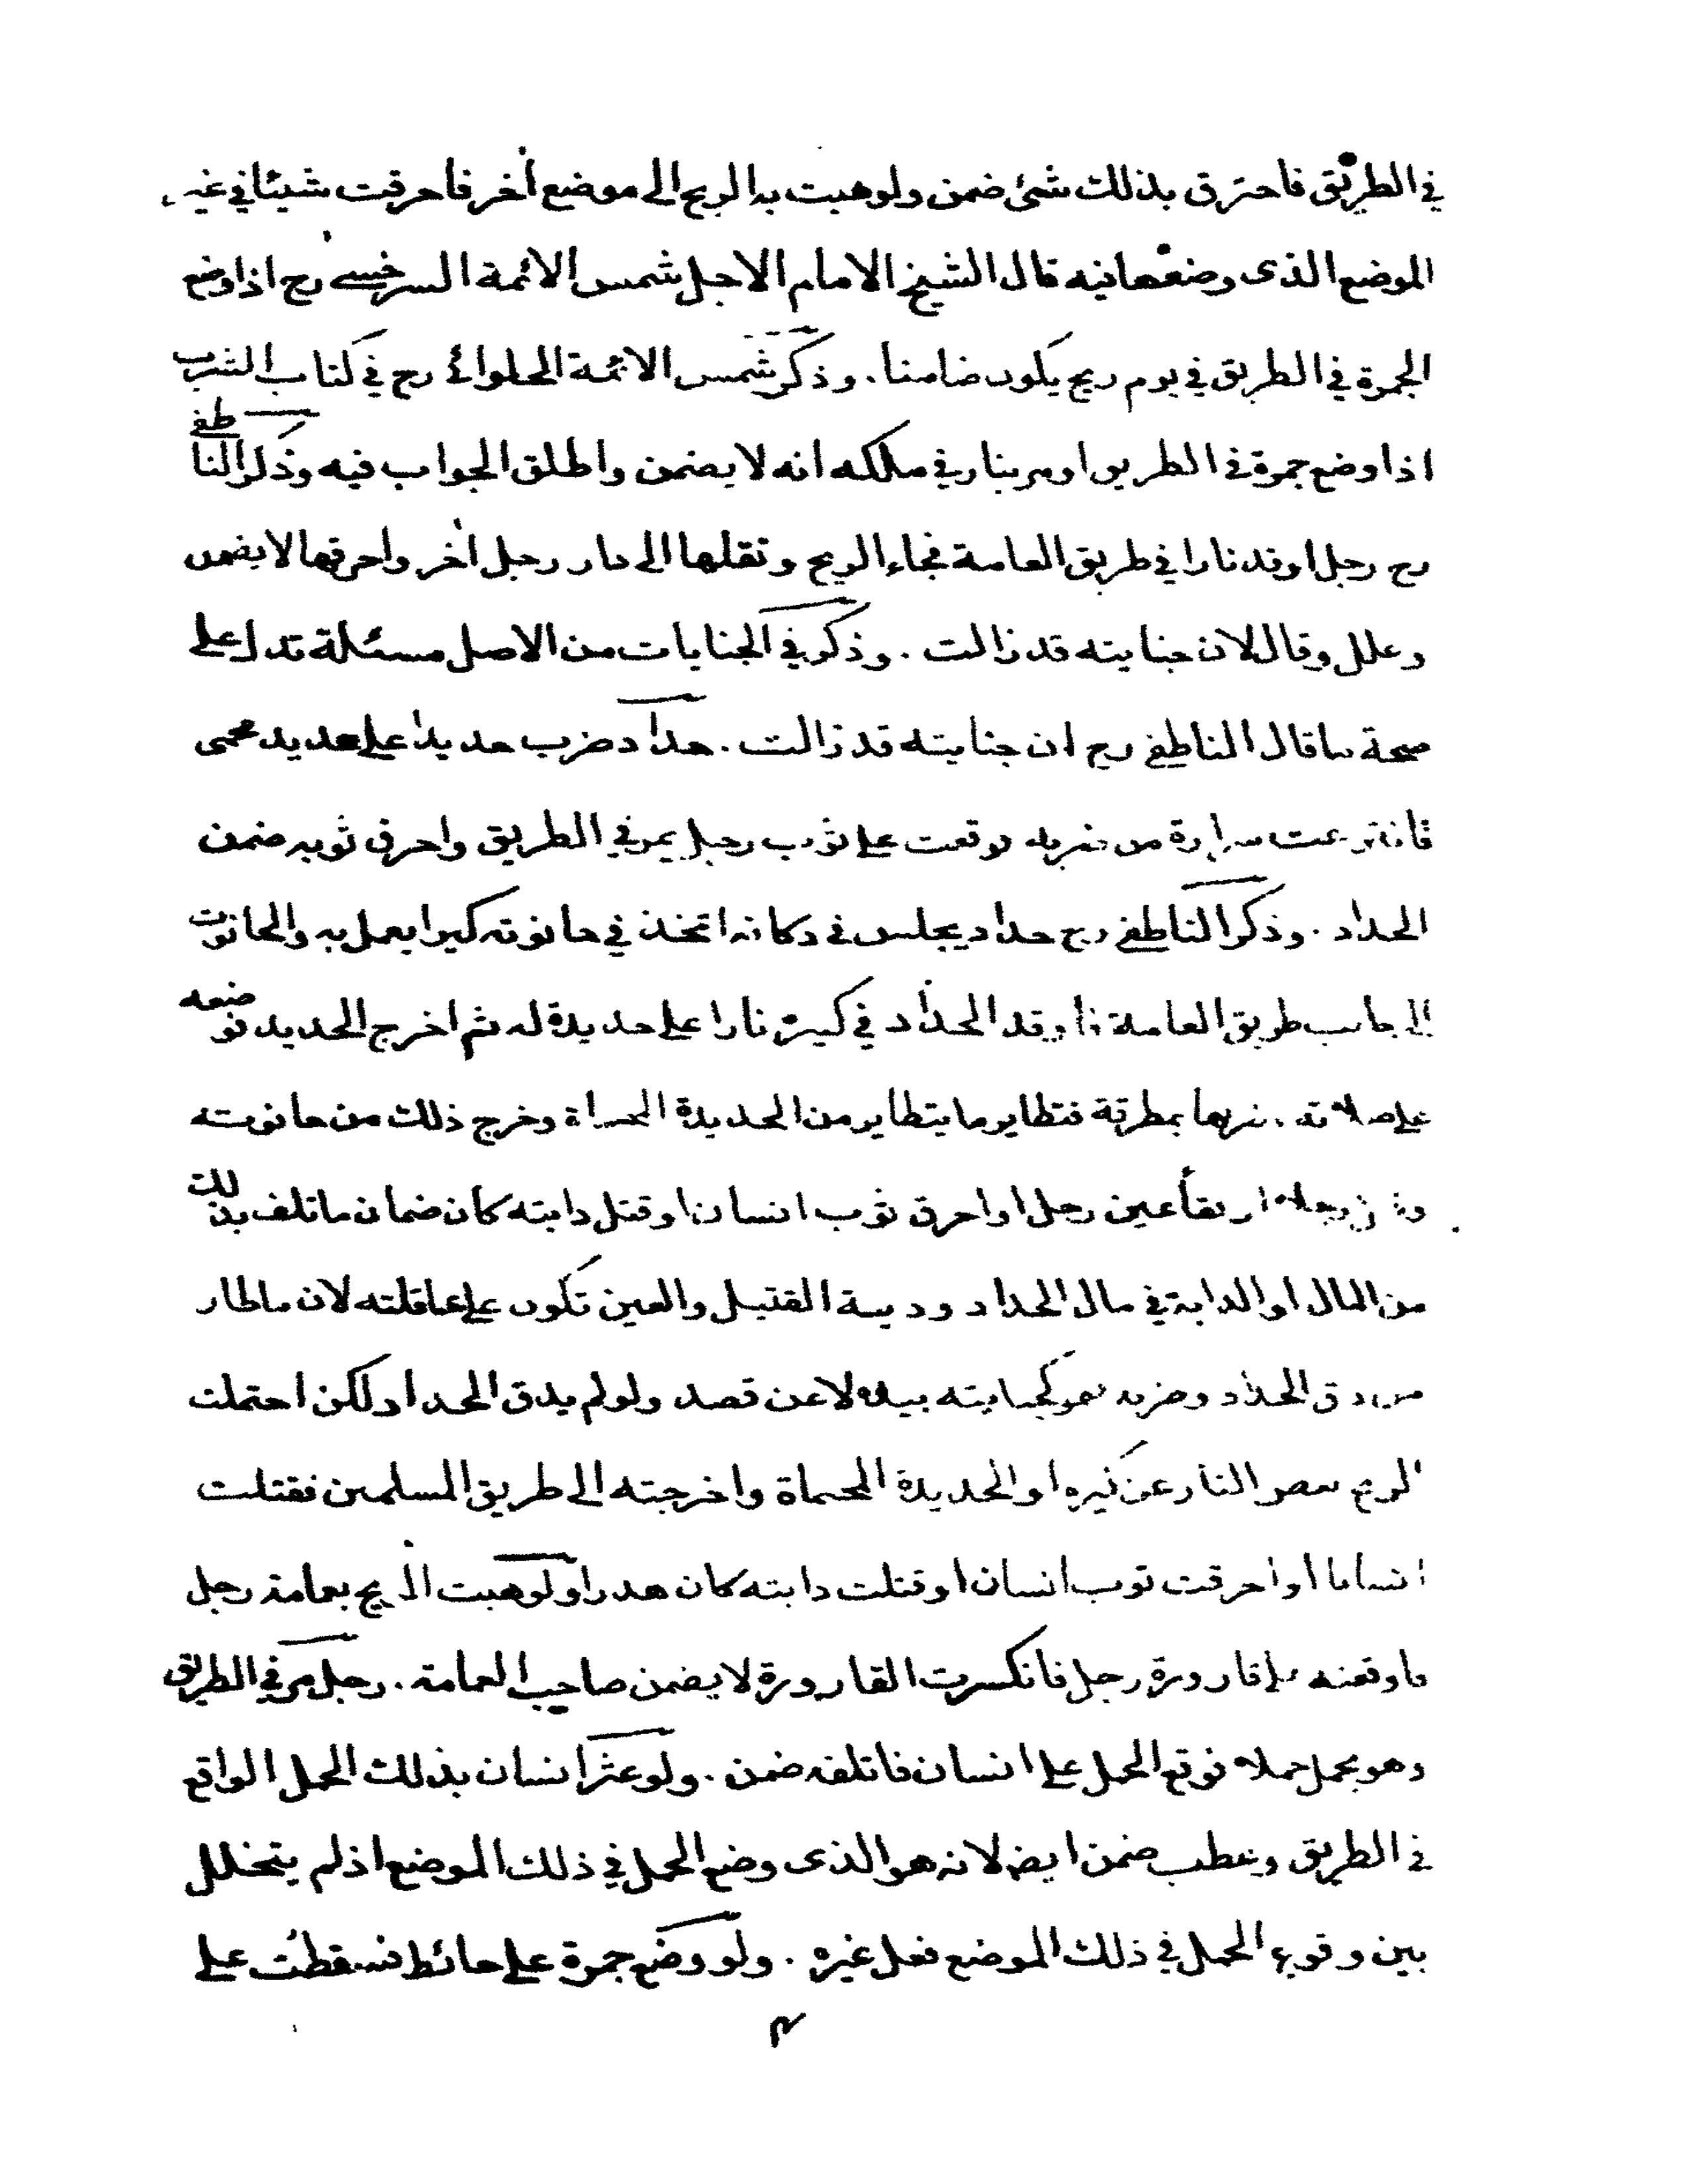 في الطريق فاحترق بذلك شئ ضمن ولو هبت به الريح الى موضع أخر فاحرقت شيئا في غير
الموضع الذى وضعها فيه قال الشيخ الامام الاجل شمس الائمة السرخسى رح اذا وضع
الجمرة في الطريق في يوم ريح يكون ضامنا. وذكر شمس الائمة الحلوائى رح في كتاب الشرب
اذا وضع جمرة في الطريق او مر بنار في ملكه انه لا يضمن واطلق الجواب فيه وذكر الناطفى
رح رجل اوقد نارا في طريق العامة فجاء الريح ونقلها الى دار رجل أخر واحرقها لا يضمن
وعلل وقال لان جنايته قد زالت. وذكر في الجنايات من الاصل مسئلة تدل على
صحة ما قال الناطفى رح ان جنايته قد زالت. حداد ضرب حديدا على حديد محمى
فانتزعت شرارة من ضربه فوقعت على ثوب رجل يمر في الطريق واحرق ثوبه ضمن
الحداد. وذكر الناطفى رح حداد يجلس في دكانه اتخذ في حانوته كيرا يعمل به والحانوت
الى جانب طريق العامة فاوقد الحداد في كيره نارا على حديدة له ثم اخرج الحديد فوضعه
على صلاته ضربها بمطرقة فتطاير ما يتطاير من الحديدة المحماة وخرج ذلك من حانوته
وقتل رجلا او فقأ عين رجل او احرق ثوب انسان او قتل دابته كان ضمان ما تلف بذلك
من المال او الدابة في مال الحداد ودية القتيل والعين تكون على عاقلته لان ما طار
من دق الحداد وضربه فهو كجنايته بيده لا عن قصد ولو لم يدق الحداد ولكن احتملت
الريح بعض النار عن كيره او الحديدة المحماة واخرجته الى طريق المسلمين فقتلت
انسانا او احرقت ثوب انسان او قتلت دابته كان هدرا ولو هبت الريح بعمامة رجل
فاوقعته على قارورة رجل فانكسرت القارورة لا يضمن صاحب العمامة. رجل مر في الطريق
وهو يحمل حملا فوقع الحمل على انسان فاتلفه ضمن. ولو عثر انسان بذلك الحمل الواقع
في الطريق وعطب ضمن ايضا لانه هو الذى وضع الحمل في ذلك الموضع اذ لم يتخلل
بين وقوع الحمل في ذلك الموضع فعل غيره. ولو وضع جمرة على حائط فسقطت على